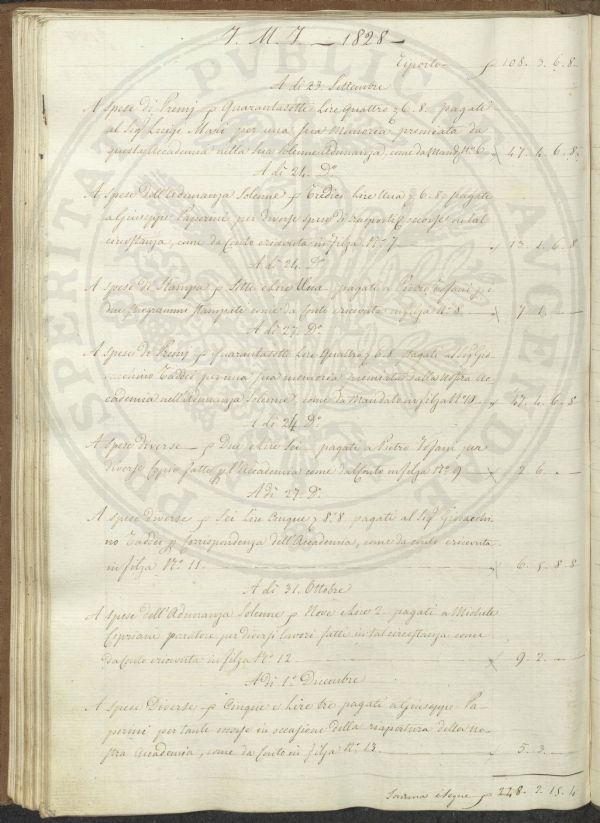 J. M. J. — 1828 —
Riporto — 108. 3. 6. 8
A dì 23. Settembre
A spese di Premj p Quarantasette Lire Quattro 6. 8. pagati
al Sigr Luigi Masi per una sua Memoria premiata da
questa Accademia nella sua solenne Adunanza, come da Mandto No 6. 47. 4. 6. 8
A dì 24. Do
A spese dell'Adunanza Solenne p Tredici Lire Una 6. 8. pagate
a Giuseppe Paperini per diverse spese di trasporti e occorse in tal
circostanza, come da Conto e ricevuta in filza No 7 — 13. 1. 6. 8
A dì 24. Do
A spese di Stampa p Sette e Lire Una pagati a Pietro Tofani p i
due Programmi stampati come da Conto e ricevuta in filza No 8 — 7. 1. —
A dì 27. Do
A spese di Premj p Quarantasette Lire Quattro 6. 8. pagati al Sigr Gio
vacchino Taddei per una sua memoria premiata dalla nostra Ac
cademia nell'Adunanza Solenne, come da Mandato in filza No 10 — 47. 4. 6. 8
A dì 24. Do
A Spese diverse — p Due e Lire Sei — pagati a Pietro Tofani per
diverse Copie fatte p l'Accademia come da Conto in filza No 9 — 2. 6. —
A dì 27. Do
A spese diverse p Sei Lire Cinque 8. 8 pagati al Sigr Giovacchi
no Taddei p Corrispondenza dell'Accademia, come da conto e ricevuta
in filza No 11. — 6. 5. 8. 8
A dì 31. Ottobre
A spese dell'Adunanza Solenne p Nove e Lire 2. pagati a Michele
Cipriani paratore per diversi lavori fatti in tal circostanza come
da Conto e ricevuta in filza No 12 — 9. 2. —
A dì 1o Dicembre
A spese Diverse — p Cinque e Lire tre pagati a Giuseppe Pa
perini per tante occorse in occasione della riapertura della no
stra Accademia, come da Conto in filza No 13. — 5. 3. —
Somma e Segue p 248. 2. 15. 4
PROSPERITATI PUBLICAE AUGENDAE